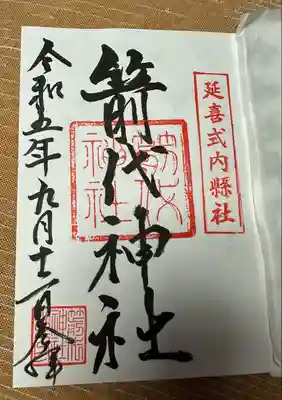 延喜式内縣社
箭代神社
箭代神社
令和五年九月十一日参拝